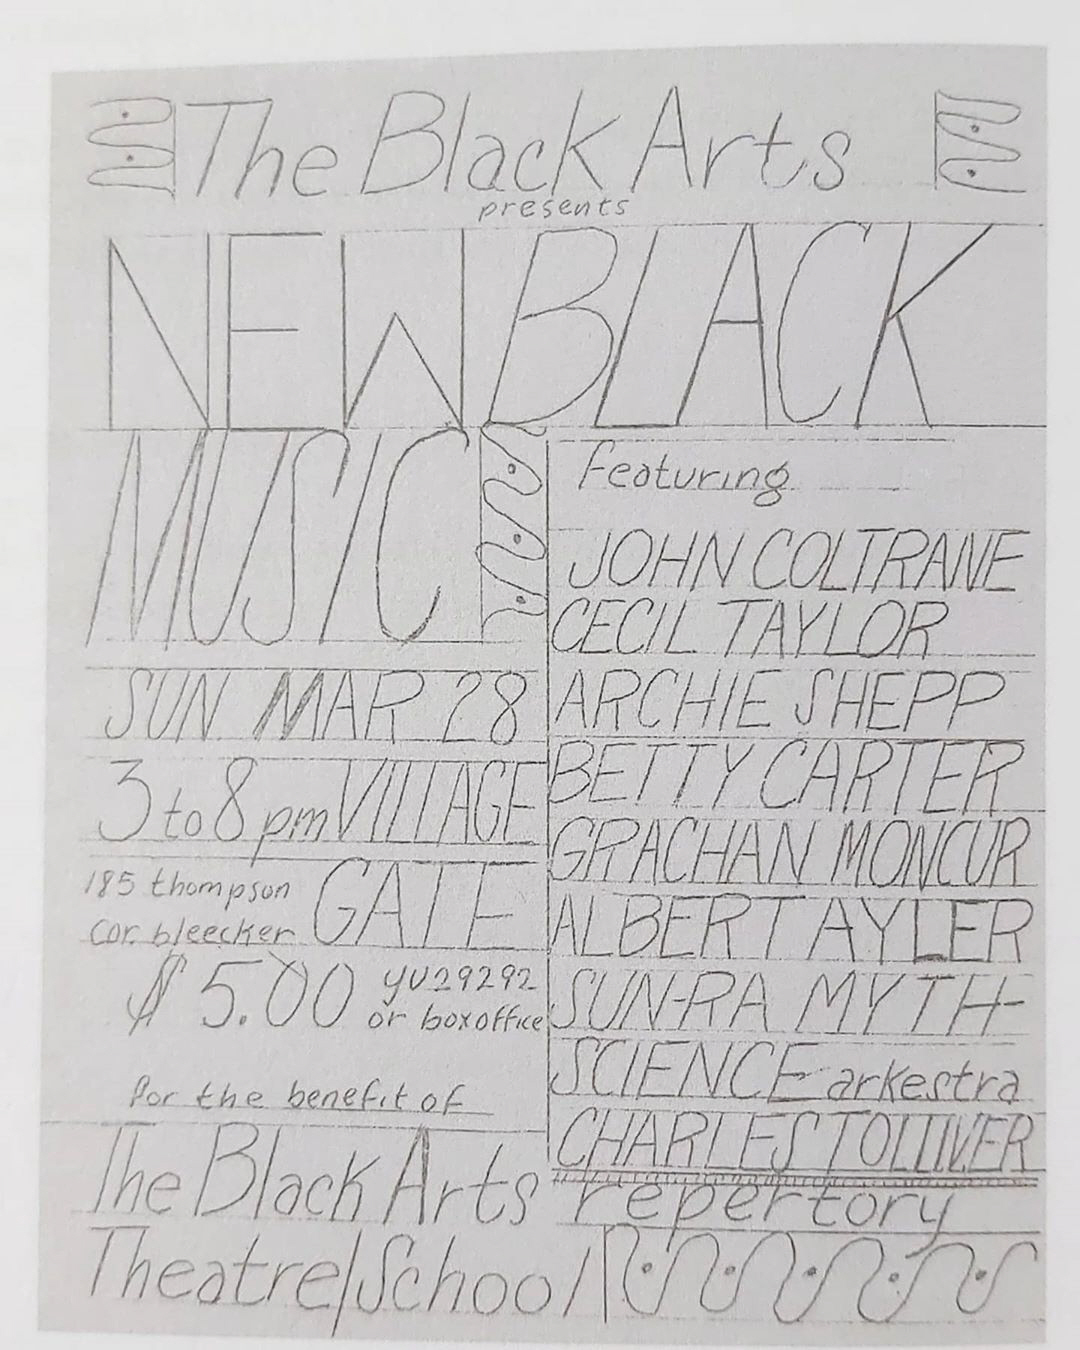 The Black Arts
presents
NEW BLACK
MUSIC
SUN MAR 28
3 to 8 pm VILLAGE
185 thompson GATE
cor. bleecker
$5.00 YU29292
or boxoffice
Featuring
JOHN COLTRANE
CECIL TAYLOR
ARCHIE SHEPP
BETTY CARTER
GRACHAN MONCUR
ALBERT AYLER
SUN-RA MYTH-
SCIENCE arkestra
CHARLES TOLLIVER
For the benefit of
The Black Arts repertory
Theatre/School/